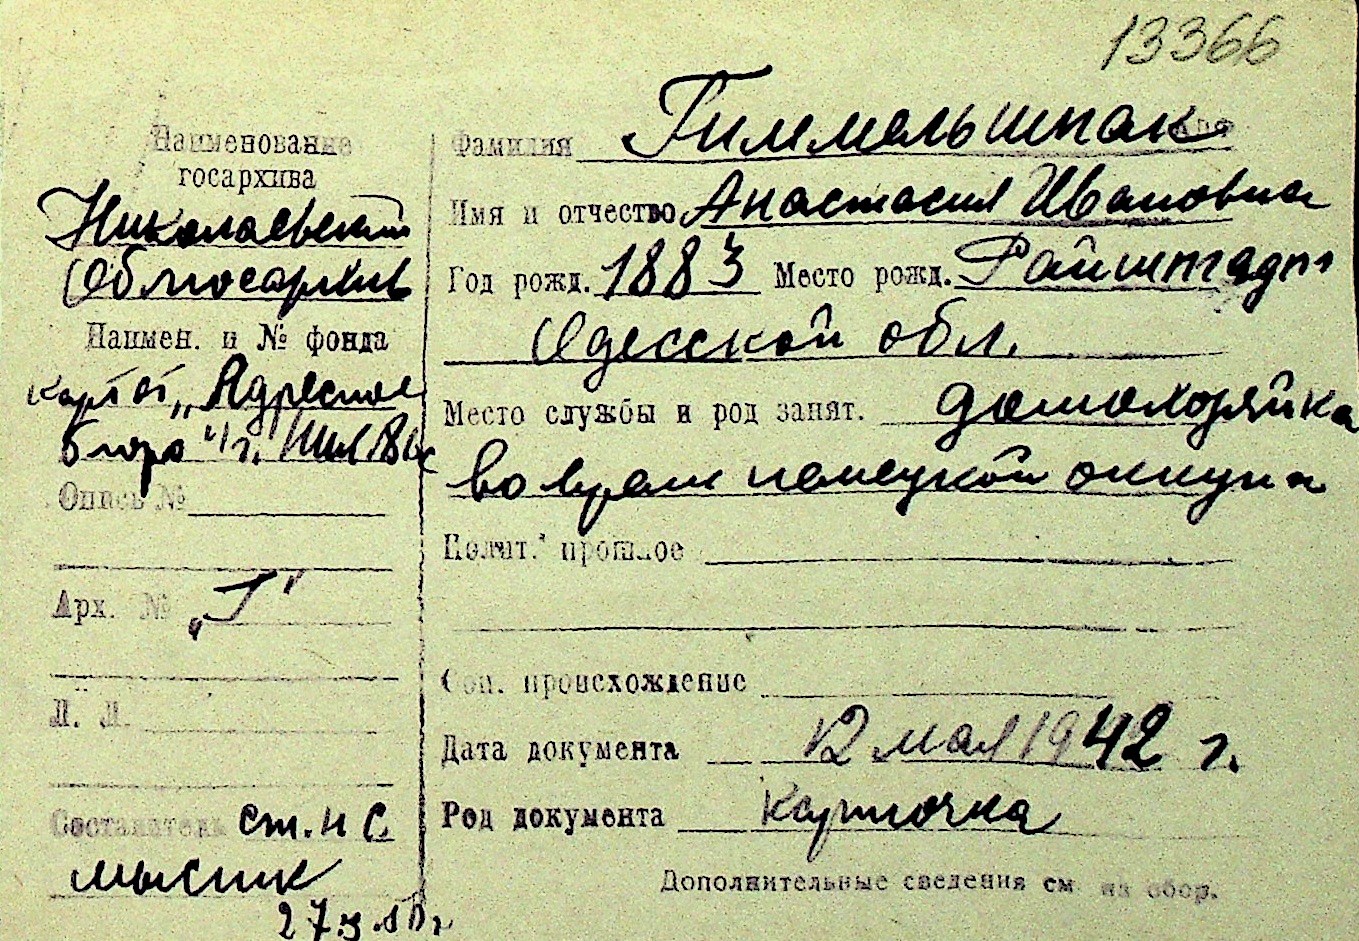 13366
Наименование
госархива
Николаевский
Облгосархив
Наимен. и № фонда
"Адресное
бюро" г.
Опись №
Арх. № "Г"
Л. Л.
Составитель ст. н с.
мысик
Фамилия Гиммельшпак
Имя и отчество Анастасия Ивановна
Год рожд. 1883 Место рожд. Райштадт
Одесской обл.
Место службы и род занят. домохозяйка
во время немецкой оккупа
Полит. прошлое
Соц. происхождение
Дата документа 12 мая 1942 г.
Род документа карточка
Дополнительные сведения см на обор.